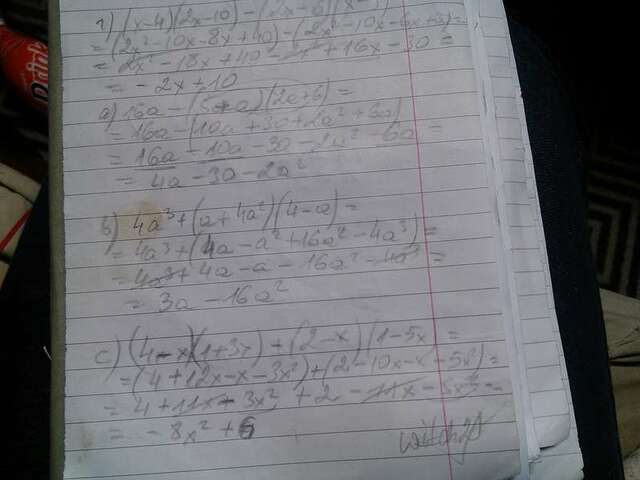 (x-4)(2x-10)-
=(2x²-10x-8x+40)-(2x²-10x-6x+30)=
=2x²-18x+40-2x²+16x-30=
=-2x+10
a) 16a-(5+a)(2a+6)=
=16a-(10a+30+2a²+6a)
=16a-10a-30-2a²-6a=
=4a-30-2a²
b) 4a³+(a+4a²)(4-a)=
=4a³+(4a-a²+16a²-4a³)=
=4a³+4a-a-16a²-4a³=
=3a-16a²
c) (4-x)(1+3x)+(2-x)(1-5x)=
=(4+12x-x-3x²)+(2-10x-x-5x²)=
=4+11x-3x²+2-11x-5x²=
=-8x²+6